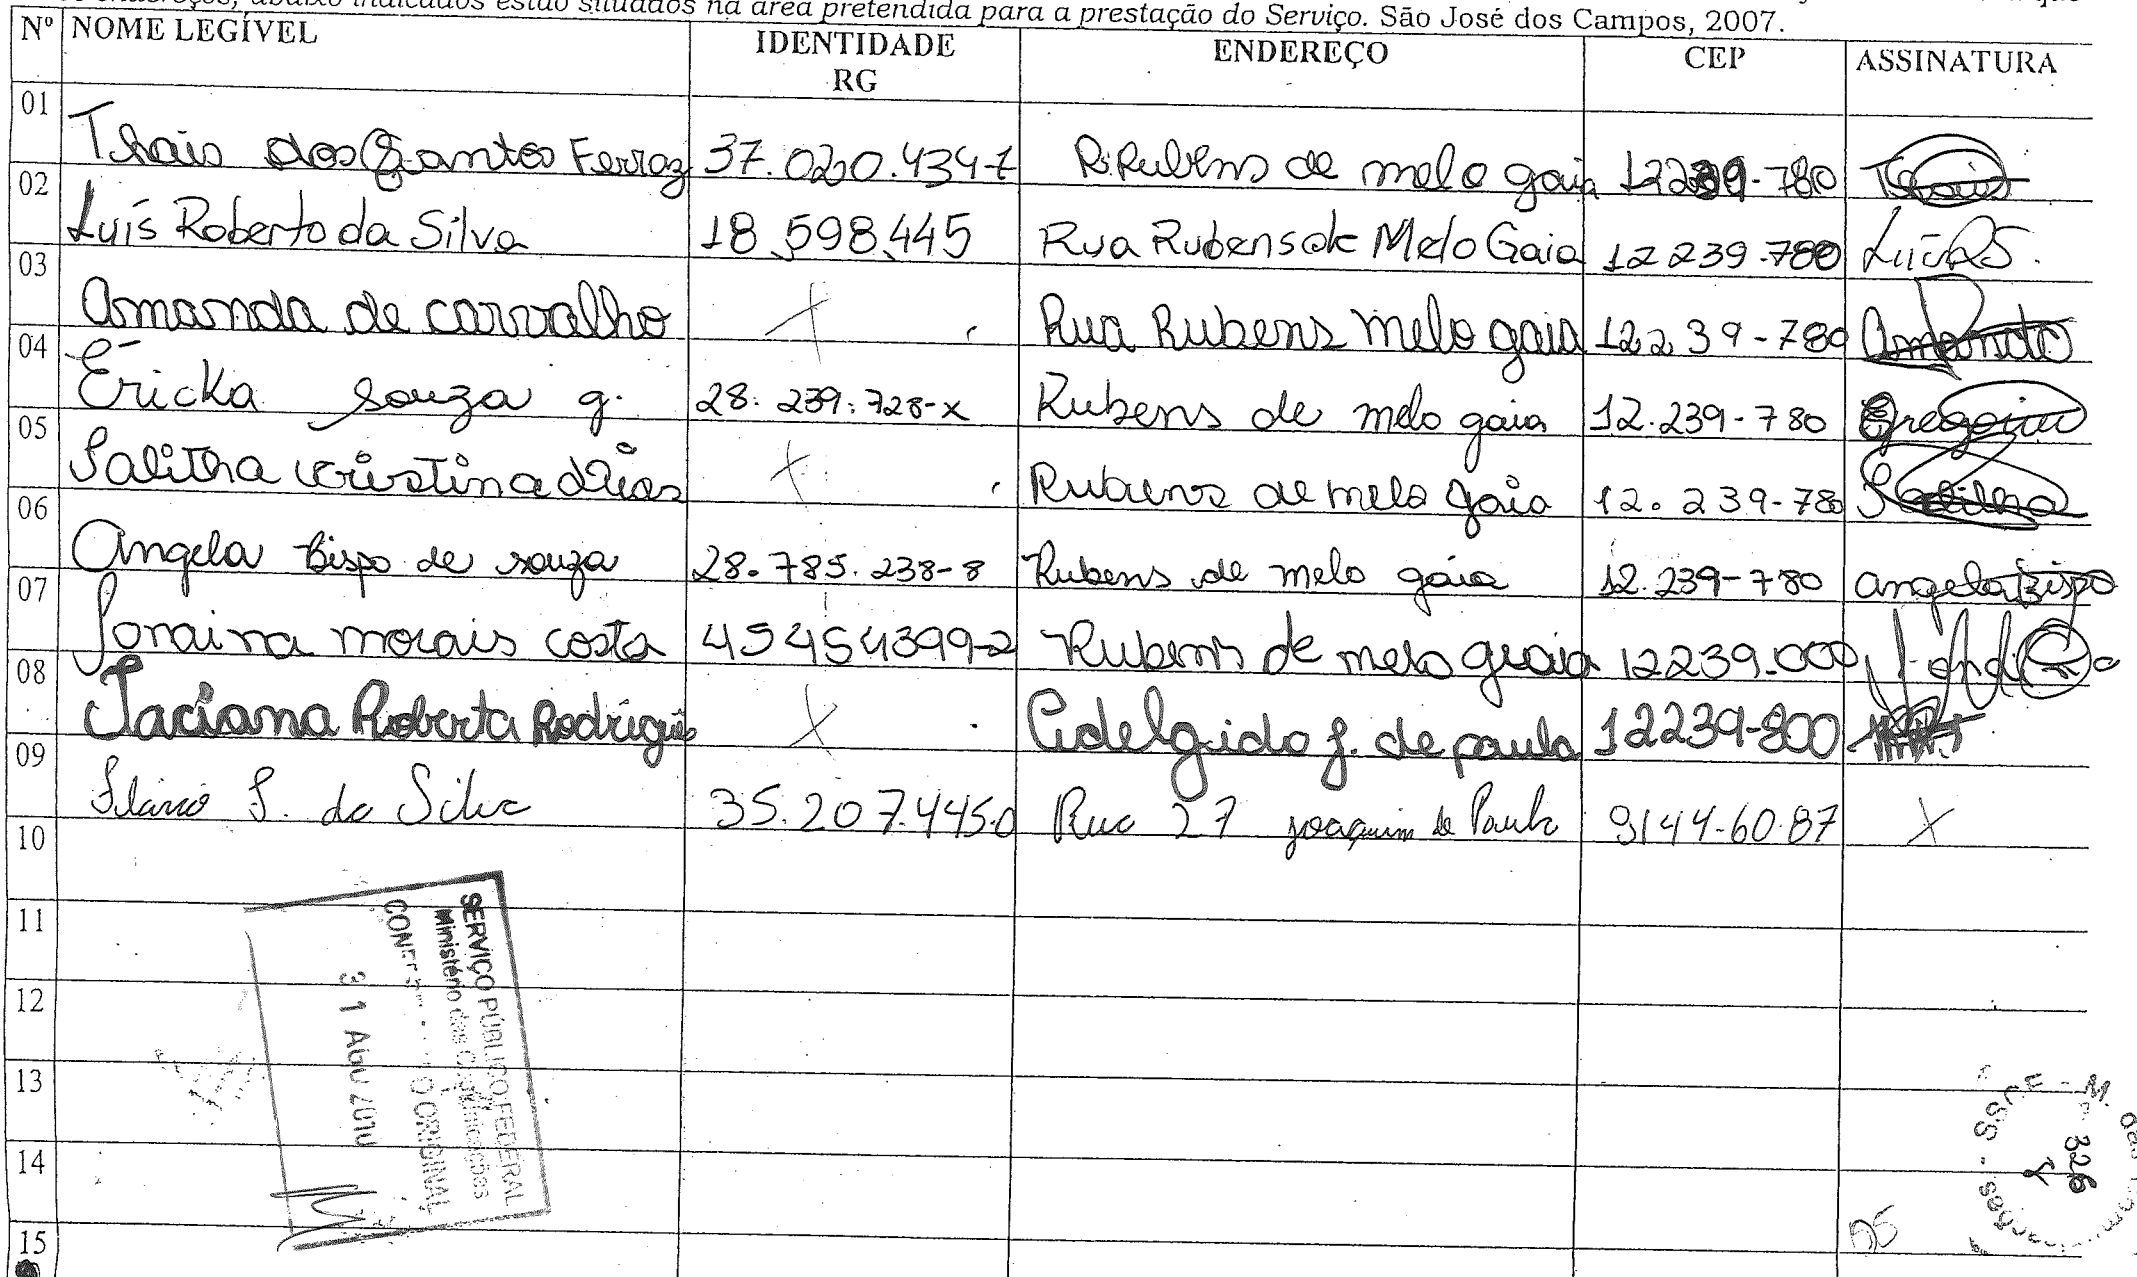 abaixo indicados estão situados na área pretendida para a prestação do Serviço. São José dos Campos, 2007.
Nº NOME LEGÍVEL IDENTIDADE RG ENDEREÇO CEP ASSINATURA
01 Thais dos Santos Ferraz 37.020.434-1 R. Rubens de melo gaia 12239-780 Thais
02 Luís Roberto da Silva 18.598.445 Rua Rubens de Melo Gaia 12239-780
03 Amanda de carvalho X Rua Rubens melo gaia 12239-780 Amanda
04 Éricka Souza g. 28.239.728-x Rubens de melo gaia 12.239-780
05 Salitha cristina dias X Rubens de melo gaia 12.239-780 Salitha
06 Angela Bispo de souza 28.785.238-8 Rubens de melo gaia 12.239-780 Angela Bispo
07 Jonaina morais costa 45454399-2 Rubens de melo guaia 12239-000
08 Taciana Roberta Rodrigues X Edelgido J. de paula 12239-800
09 S. da Silva 35.207.445-0 Rua 27 joaquim de Paula 9144-60.87 X
10
11
12
13
14
15
SERVIÇO PÚBLICO FEDERAL
Ministério das Comunicações
O ORIGINAL
31 AGO 2010
326